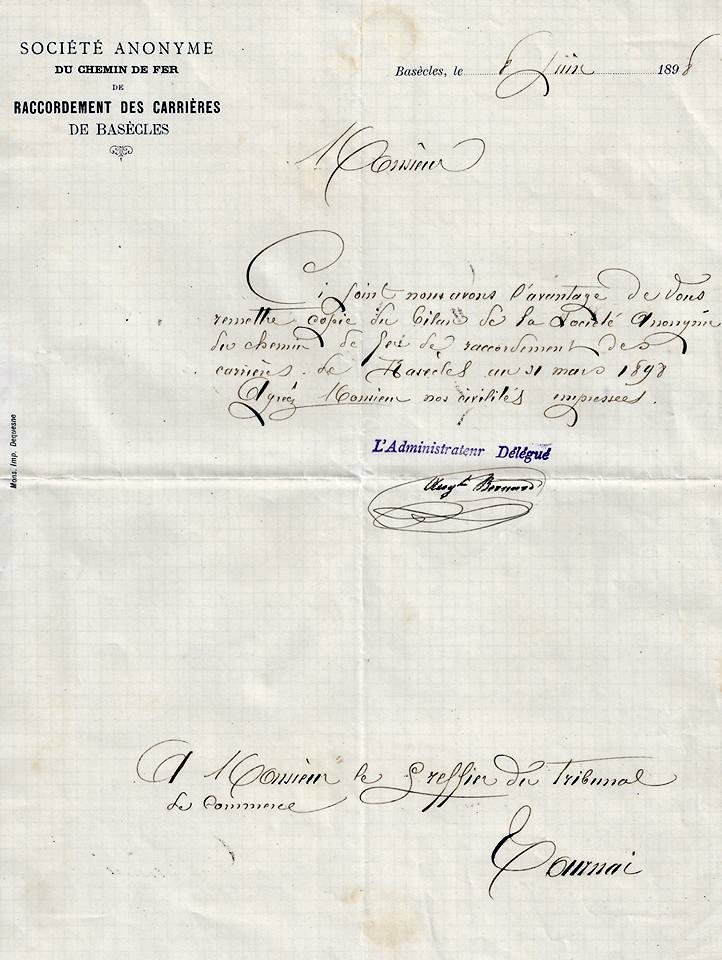 SOCIÉTÉ ANONYME
DU CHEMIN DE FER
DE
RACCORDEMENT DES CARRIÈRES
DE BASÈCLES
Basècles, le 8 Juin 1898
Monsieur
Ci joint nous avons l'avantage de vous
remettre copie du bilan de la Société Anonyme
du chemin de fer de raccordement des
carrières de Basècles au 31 mars 1898
Agréez Monsieur nos civilités empressées.
L'Administrateur Délégué
Augte Bernard
Mons. Imp. Dequesne
A Monsieur le Greffier du Tribunal
de commerce
Tournai